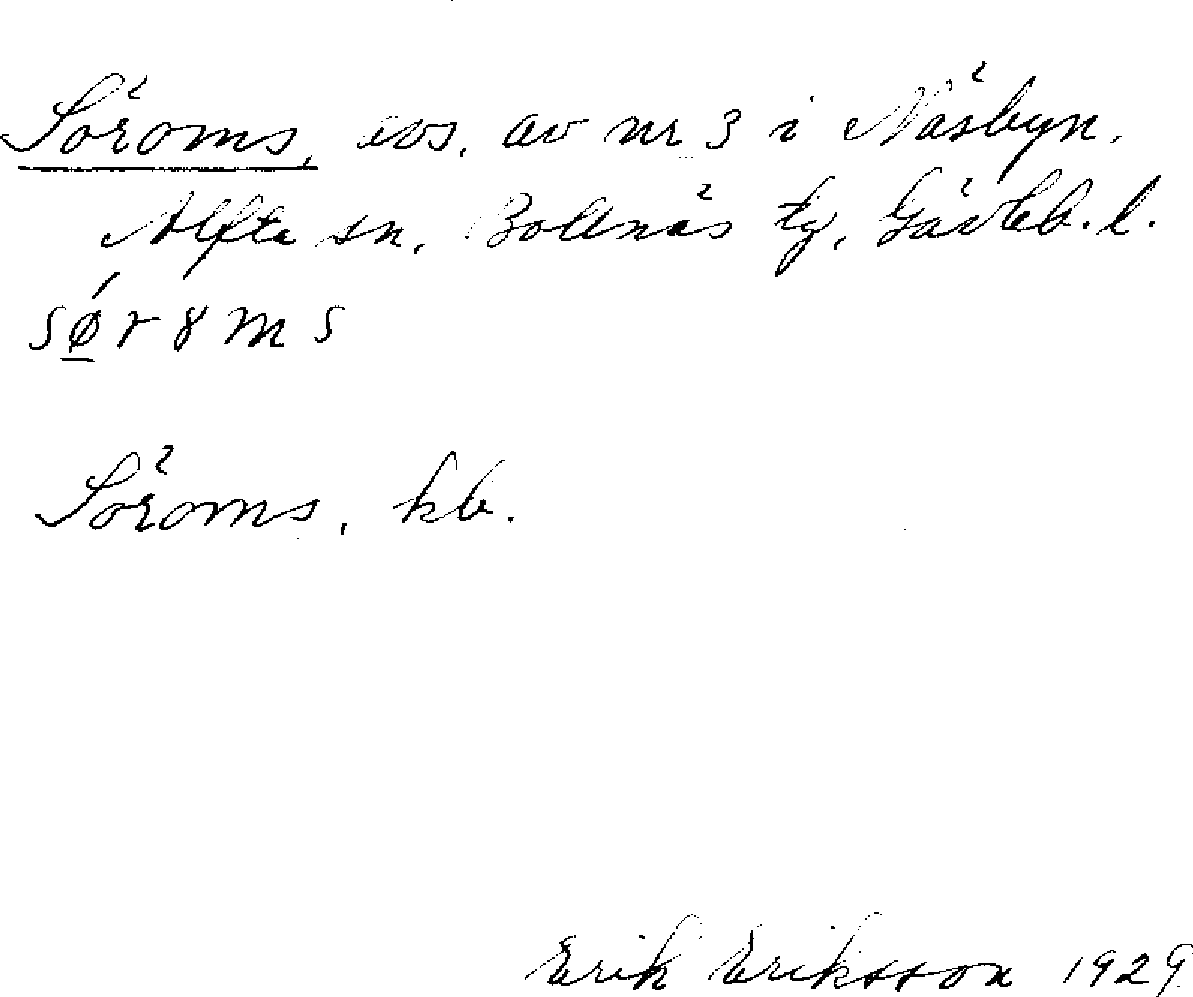 Söroms, avs. av nr 3 i Näsbyn.
Alfta sn, Bollnäs tg, Gävleb. l.
sǿ̲r8ms
Söroms, kb.
Erik Eriksson 1929